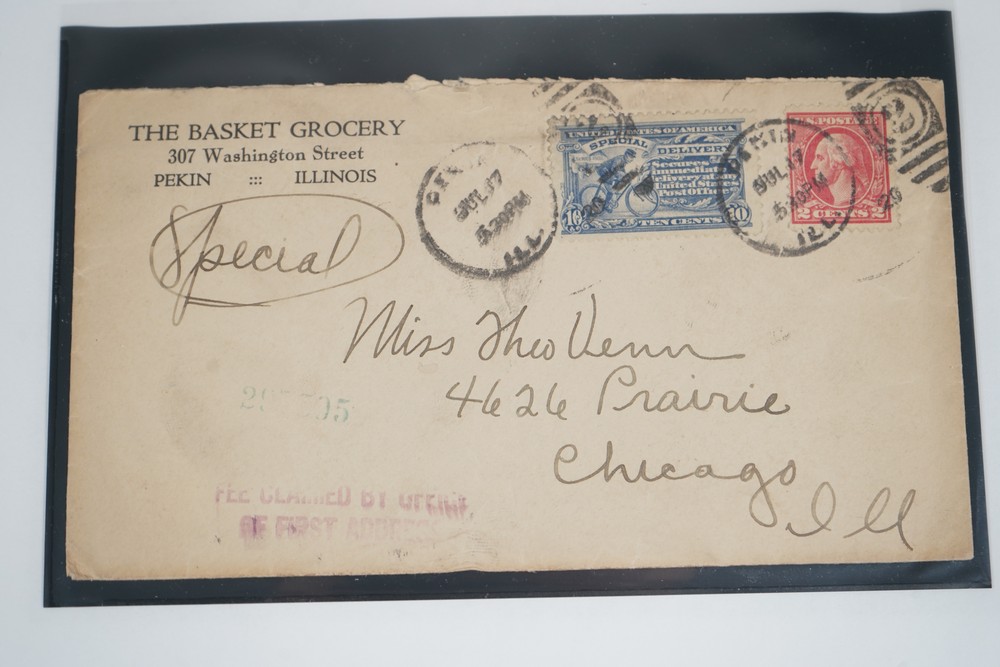 THE BASKET GROCERY
307 Washington Street
PEKIN ::: ILLINOIS
Special
PEKIN
JUL 17
5-30PM
ILL.
UNITED STATES OF AMERICA
SPECIAL DELIVERY
Secures
immediate
delivery at any
United States
Post Office
10 TEN CENTS 10
PEKIN
JUL 17
5-30PM
20
ILL.
U.S. POSTAGE
2 CENTS 2
Miss Theo Venn
4626 Prairie
Chicago
Ill
FEE CLAIMED BY OFFICE
OF FIRST ADDRESS